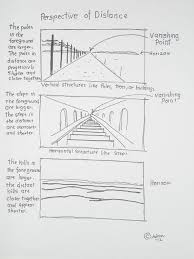 Perspective of Distance
The poles
in the
foreground
are larger.
The poles in
distance are
progressively
closer together
Vanishing
Point
Horizon
Vertical Structures like Poles, Trees, or buildings
The steps in
the foreground
are larger.
The steps in
the distance
are narrower
and shorter.
Vanishing
Point
Horizontal Structure like Steps
The hills in
the foreground
are larger
the distant
hills are
closer together
and Appear
Shorter.
Horizon